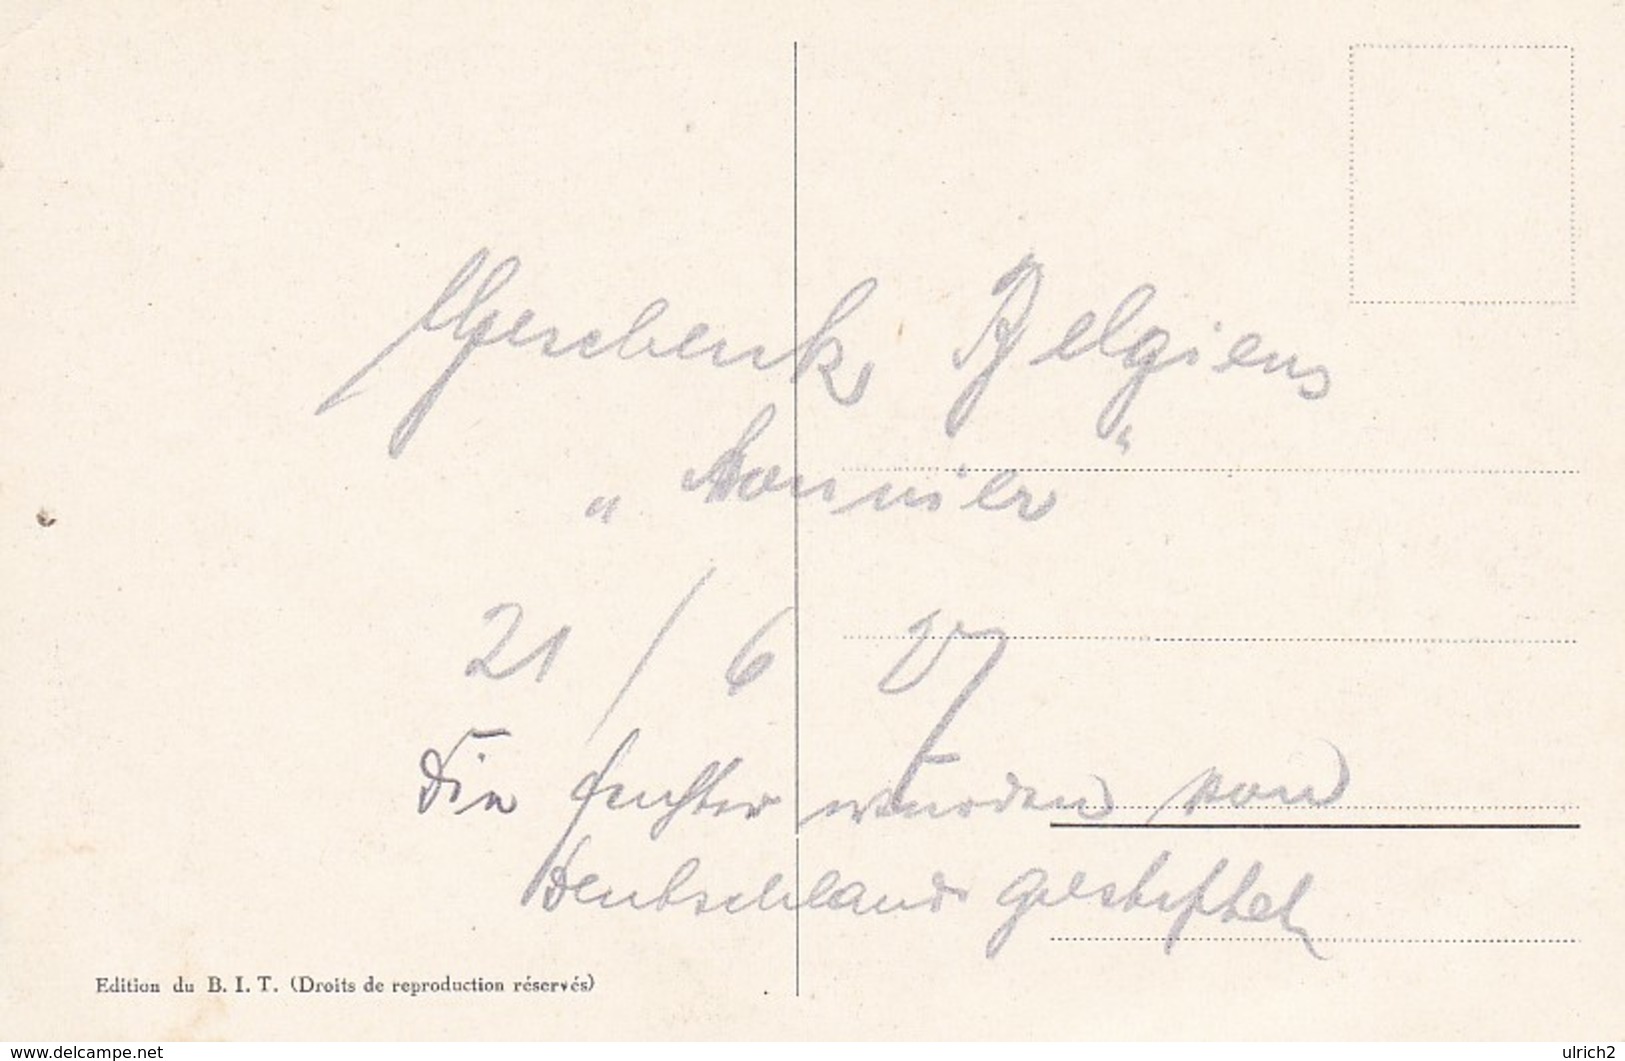 Geschenk Belgiens
„Mounier“
21/6 27
Die Fenster wurden von
Deutschland gestiftet
Edition du B. I. T. (Droits de reproduction réservés)
www.delcampe.net
ulrich2